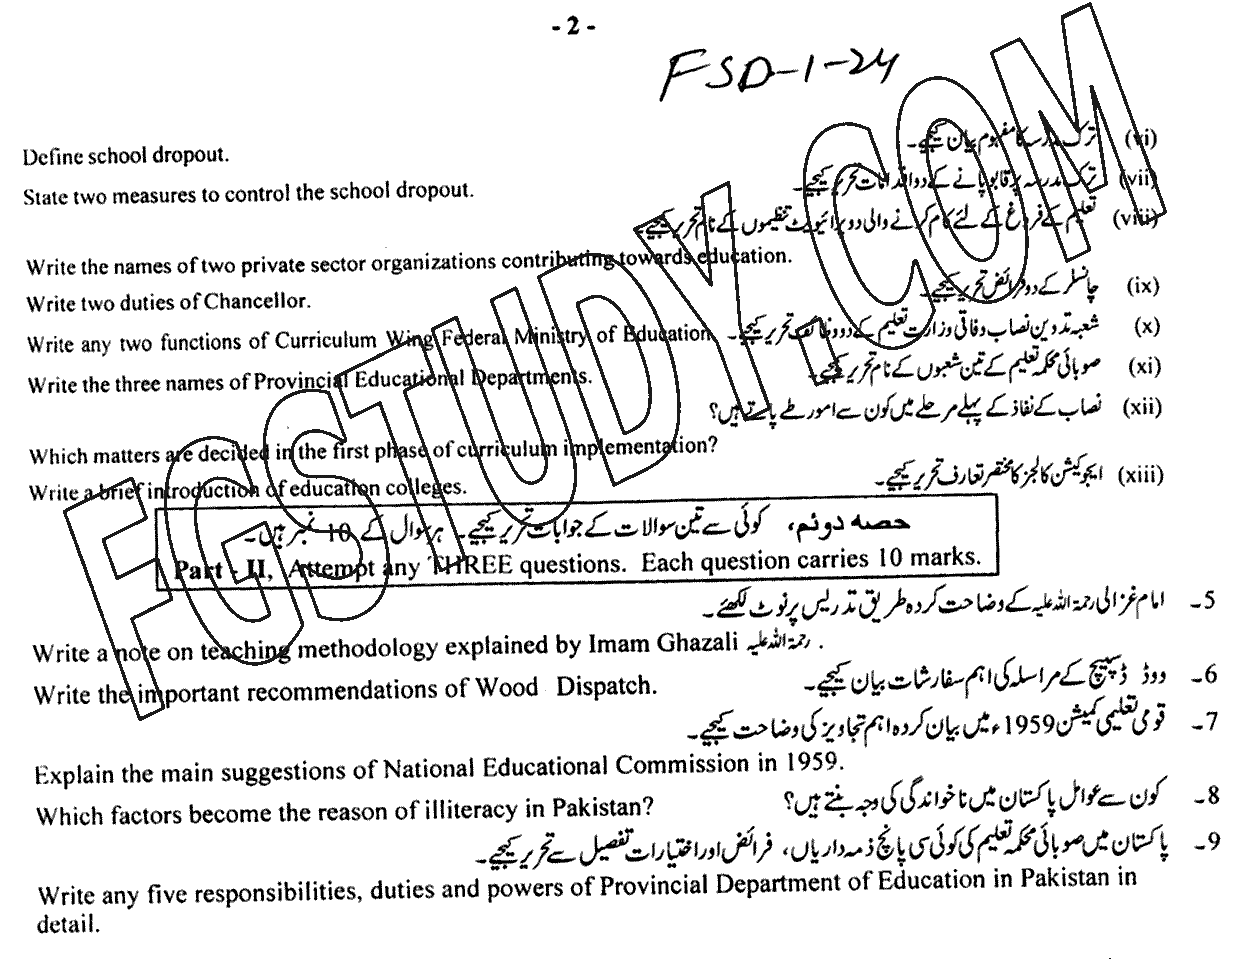 - 2 -
FSD-1-24
(vi) ترک مدرسہ کا مفہوم بیان کیجیے۔
Define school dropout.
(vii) ترک مدرسہ پر قابو پانے کے دو اقدامات تحریر کیجیے۔
State two measures to control the school dropout.
(viii) تعلیم کے فروغ کے لئے کام کرنے والی دو پرائیویٹ تنظیموں کے نام تحریر کیجیے۔
Write the names of two private sector organizations contributing towards education.
(ix) چانسلر کے دو فرائض تحریر کیجیے۔
Write two duties of Chancellor.
(x) شعبہ تدوین نصاب وفاقی وزارت تعلیم کے دو وظائف تحریر کیجیے۔
Write any two functions of Curriculum Wing Federal Ministry of Education.
(xi) صوبائی محکمہ تعلیم کے تین شعبوں کے نام تحریر کیجیے۔
Write the three names of Provincial Educational Departments.
(xii) نصاب کے نفاذ کے پہلے مرحلے میں کون سے امور طے پاتے ہیں؟
Which matters are decided in the first phase of curriculum implementation?
(xiii) ایجوکیشن کالجز کا مختصر تعارف تحریر کیجیے۔
Write a brief introduction of education colleges.
حصہ دوئم، کوئی سے تین سوالات کے جوابات تحریر کیجیے۔ ہر سوال کے 10 نمبر ہیں۔
Part - II, Attempt any THREE questions. Each question carries 10 marks.
5۔ امام غزالی رحمۃ اللہ علیہ کے وضاحت کردہ طریق تدریس پر نوٹ لکھئے۔
Write a note on teaching methodology explained by Imam Ghazali رحمۃ اللہ علیہ .
6۔ ووڈ ڈسپیچ کے مراسلہ کی اہم سفارشات بیان کیجیے۔
Write the important recommendations of Wood Dispatch.
7۔ قومی تعلیمی کمیشن 1959ء میں بیان کردہ اہم تجاویز کی وضاحت کیجیے۔
Explain the main suggestions of National Educational Commission in 1959.
8۔ کون سے عوامل پاکستان میں ناخواندگی کی وجہ بنتے ہیں؟
Which factors become the reason of illiteracy in Pakistan?
9۔ پاکستان میں صوبائی محکمہ تعلیم کی کوئی سی پانچ ذمہ داریاں، فرائض اور اختیارات تفصیل سے تحریر کیجیے۔
Write any five responsibilities, duties and powers of Provincial Department of Education in Pakistan in
detail.
FGSTUDY.COM